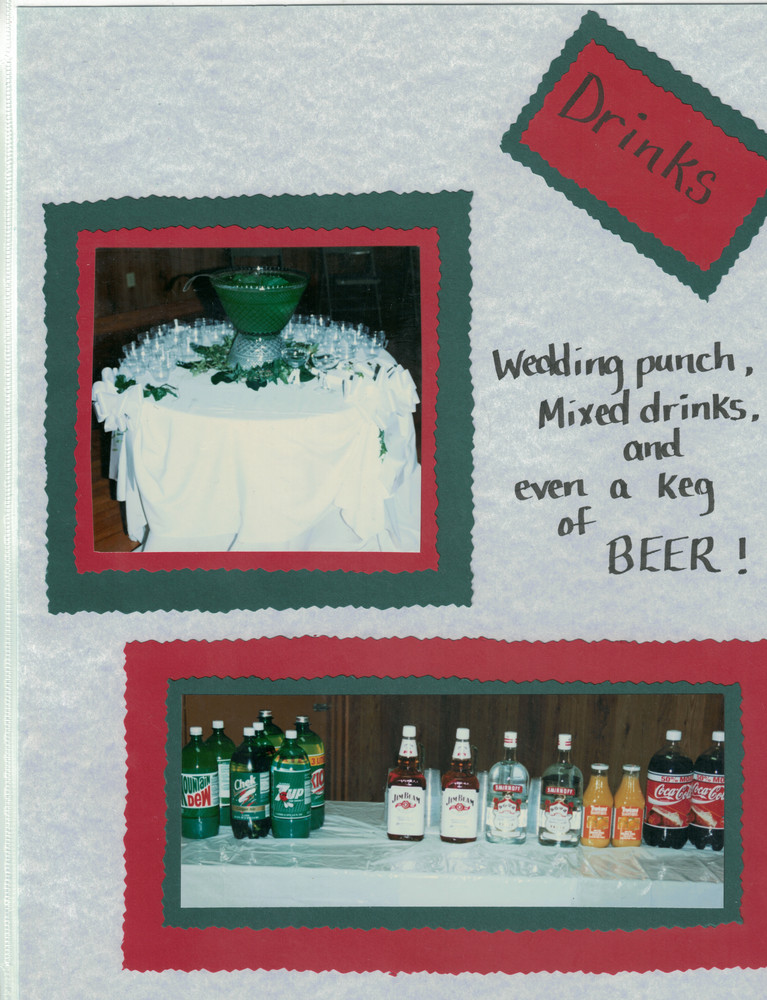 Drinks
Wedding punch,
Mixed drinks,
and
even a keg
of
BEER!
MOUNTAIN
DEW
Chek
7up
KICK
JIM BEAM
JIM BEAM
SMIRNOFF
SMIRNOFF
50% MO
Coca-Cola
50% MO
Coca-Cola